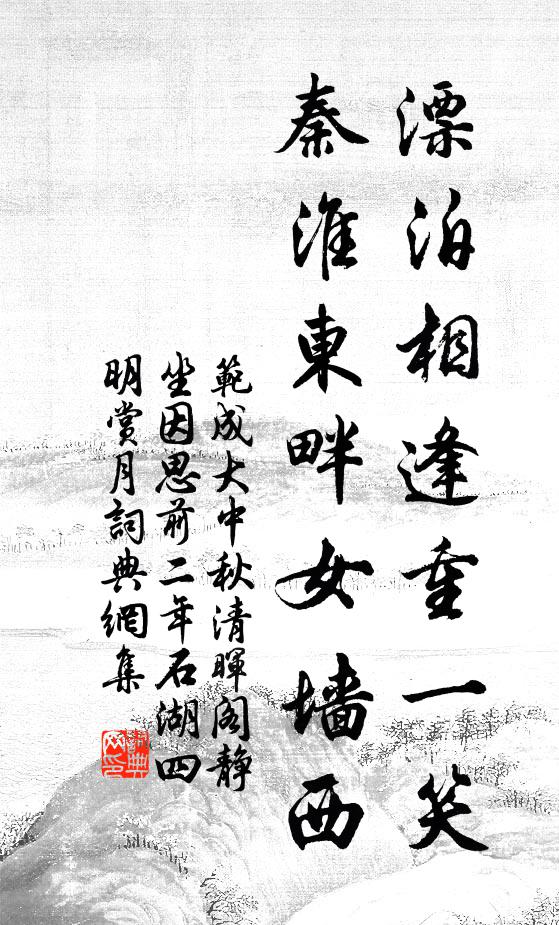 漂泊相逢重一笑
秦淮東畔女墙西
範成大中秋清暉阁静
坐因思前二年石湖四
明賞月詞典網集